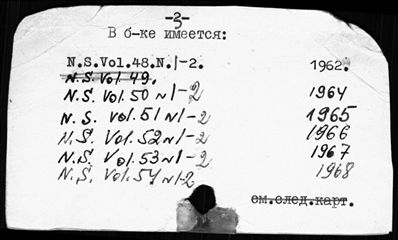 -3-
В б-ке имеется:
N.S.Vol.48.N.1-2. 1962.
N.S. Vol. 49.
N.S. Vol. 50 N 1-2 1964
N.S. Vol. 51 N 1-2 1965
N.S. Vol. 52 N 1-2 1966
N.S. Vol. 53 N 1-2 1967
N.S. Vol. 54 N 1-2 1968
см.след.карт.